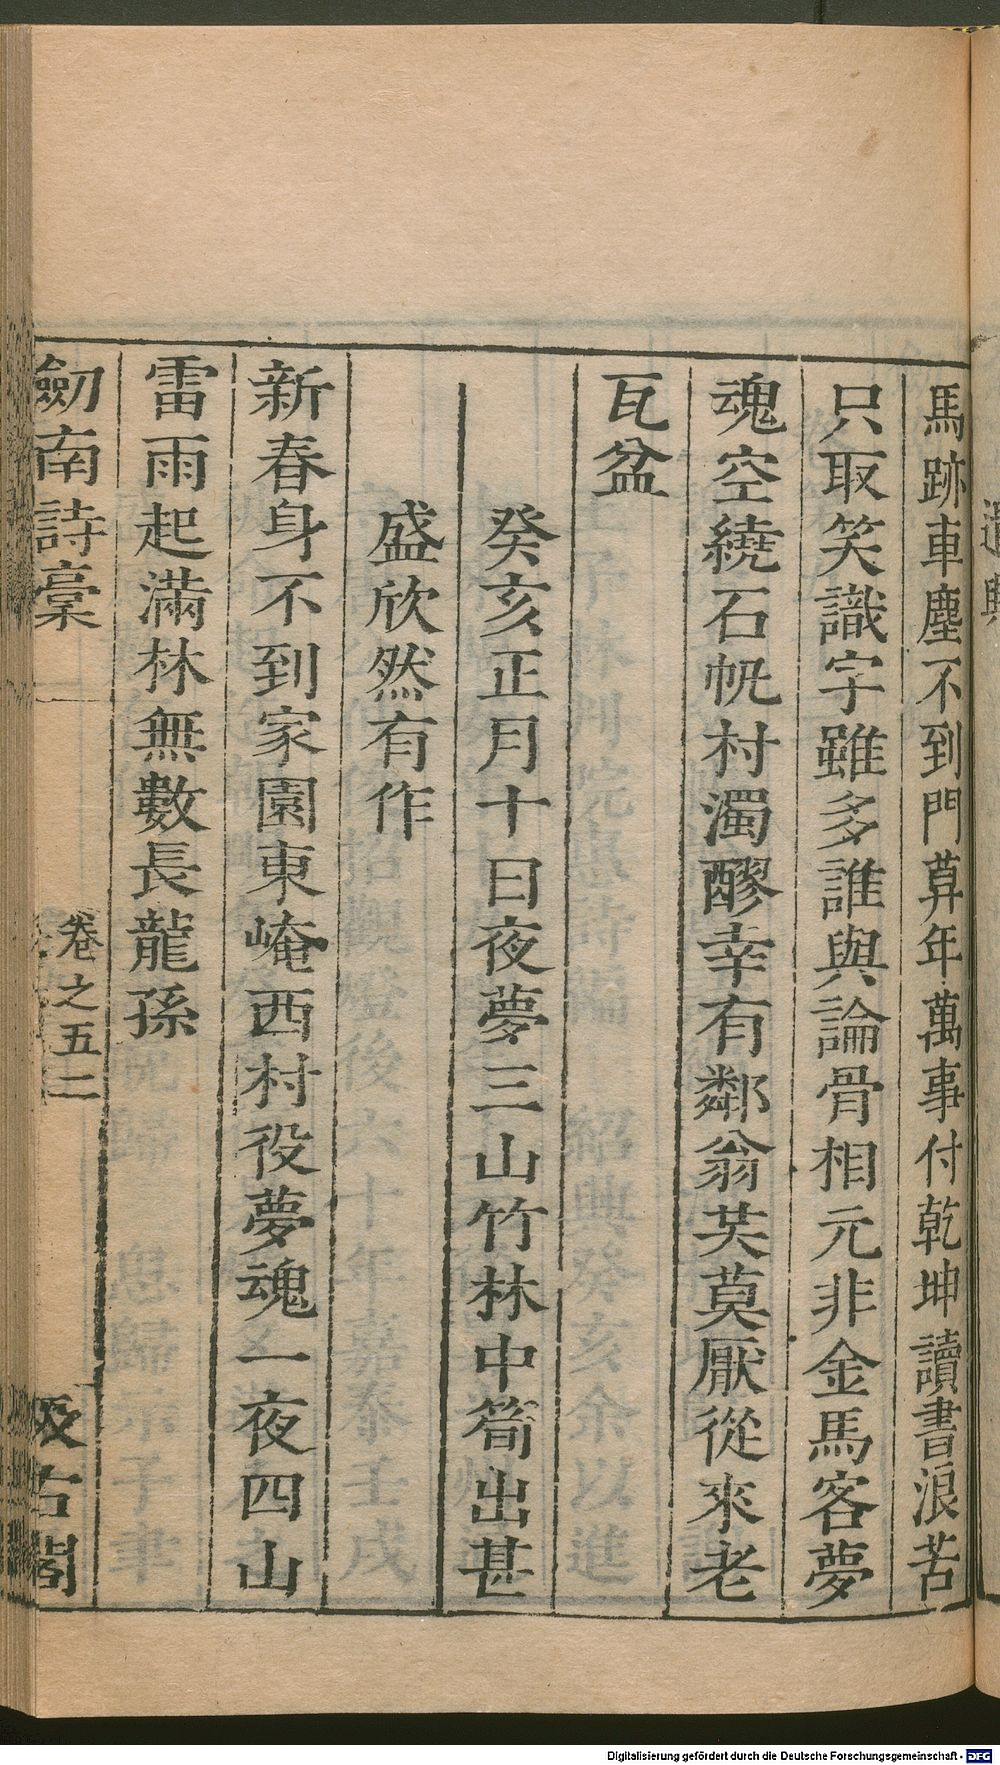 馬跡車塵不到門算年萬事付乾坤讀書浪苦
只取笑識字雖多誰與論骨相元非金馬客夢
魂空繞石帆村濁醪幸有鄰翁共莫厭從來老
瓦盆
癸亥正月十日夜夢三山竹林中筍出甚
盛欣然有作
新春身不到家園東崦西村役夢魂一夜四山
雷雨起滿林無數長龍孫
劒南詩稾
卷之五二
汲古閣
Digitalisierung gefördert durch die Deutsche Forschungsgemeinschaft - DFG